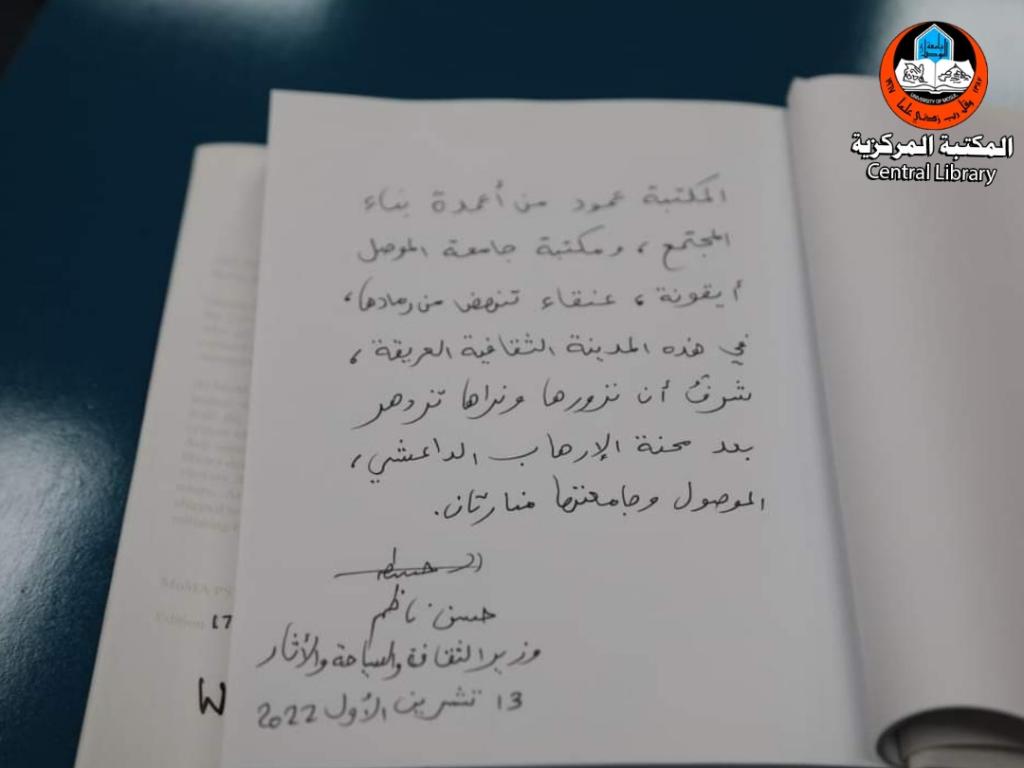 المكتبة عمود من أعمدة بناء
المجتمع، ومكتبة جامعة الموصل
أيقونة، عنقاء تنهض من رمادها،
في هذه المدينة الثقافية العريقة،
شرفٌ أن نزورها ونراها تزدهر
بعد محنة الإرهاب الداعشي،
الموصول وجامعتها منارتان.
حسن ناظم
وزير الثقافة والسياحة والآثار
13 تشرين الأول 2022
جامعة الموصل
UNIVERSITY OF MOSUL
وقل رب زدني علما
المكتبة المركزية
Central Library
MoMA PS
Edition 17
W